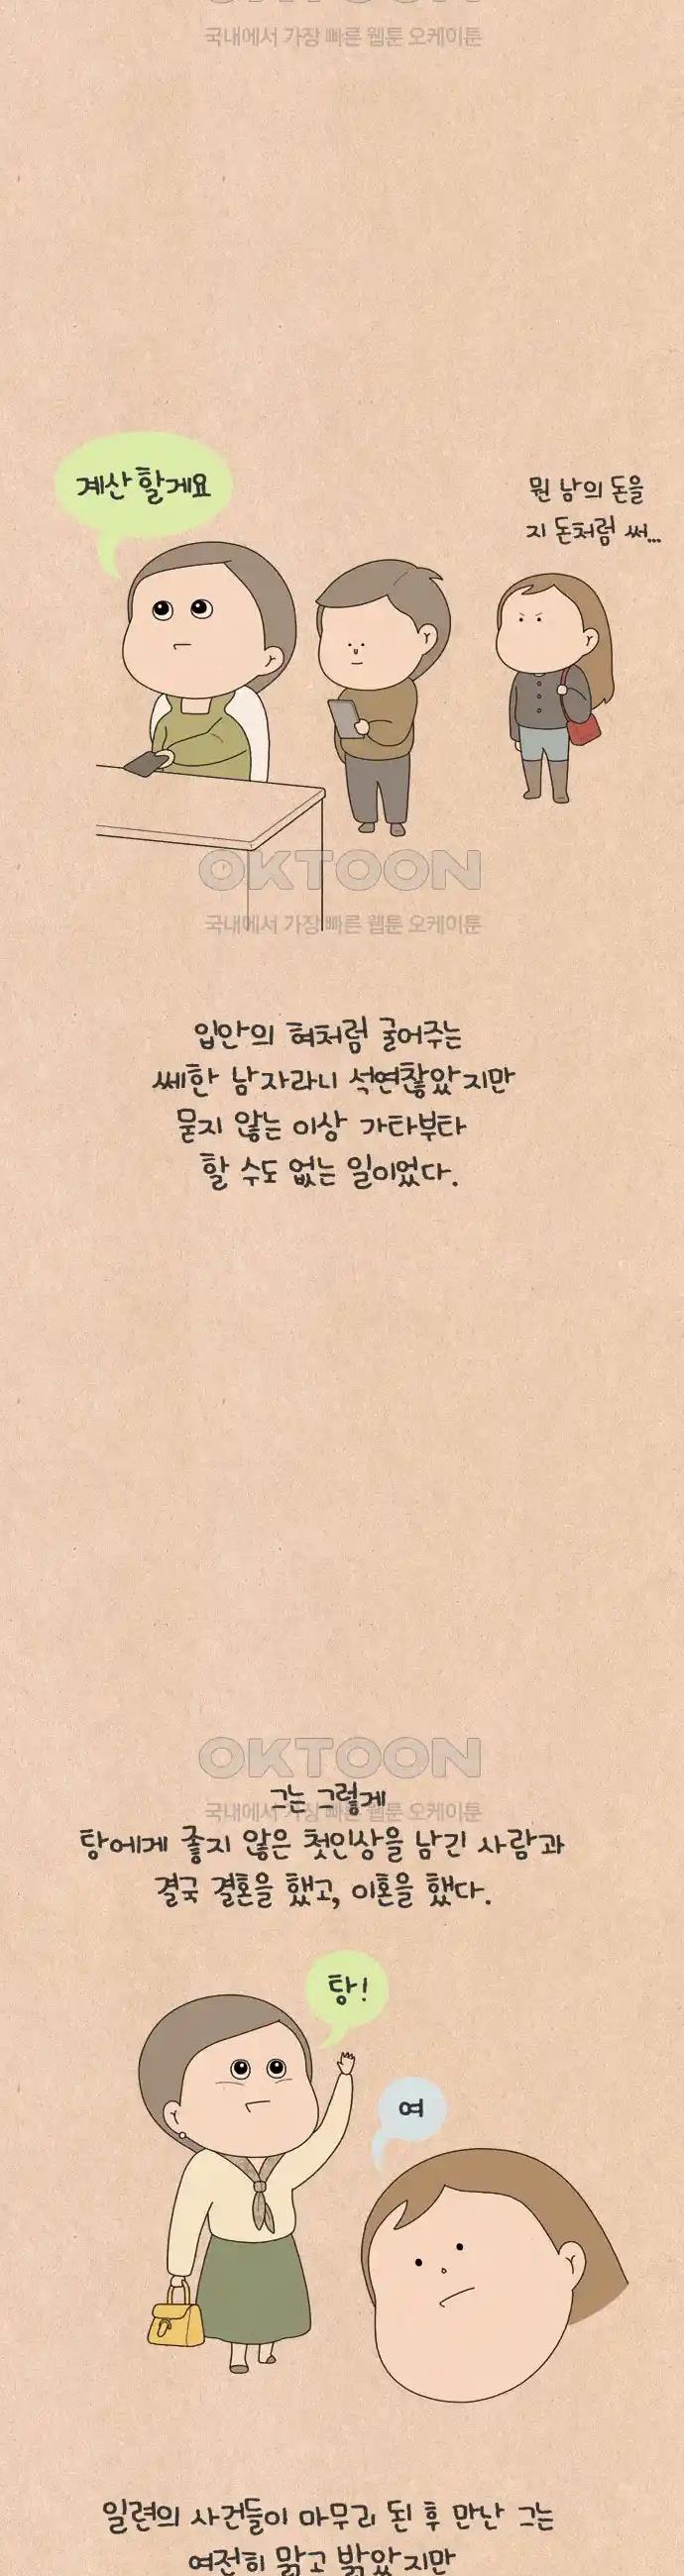 국내에서 가장 빠른 웹툰 오케이툰
계산 할게요
뭔 남의 돈을
지 돈처럼 써...
OKTOON
국내에서 가장 빠른 웹툰 오케이툰
입안의 혀처럼 굴어주는
쎄한 남자라니 석연찮았지만
묻지 않는 이상 가타부타
할 수도 없는 일이었다.
OKTOON
그는 그렇게
국내에서 가장 빠른 웹툰 오케이툰
탕에게 좋지 않은 첫인상을 남긴 사람과
결국 결혼을 했고, 이혼을 했다.
탕!
여
일련의 사건들이 마무리 된 후 만난 그는
여전히 맑고 밝았지만